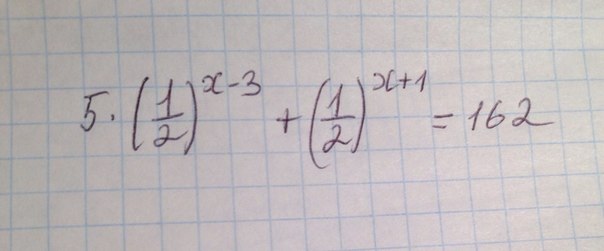 5 · (1/2)^(x-3) + (1/2)^(x+1) = 162